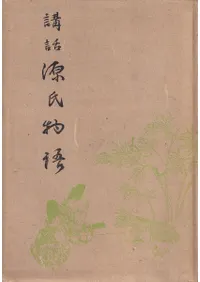 講話 源氏物語